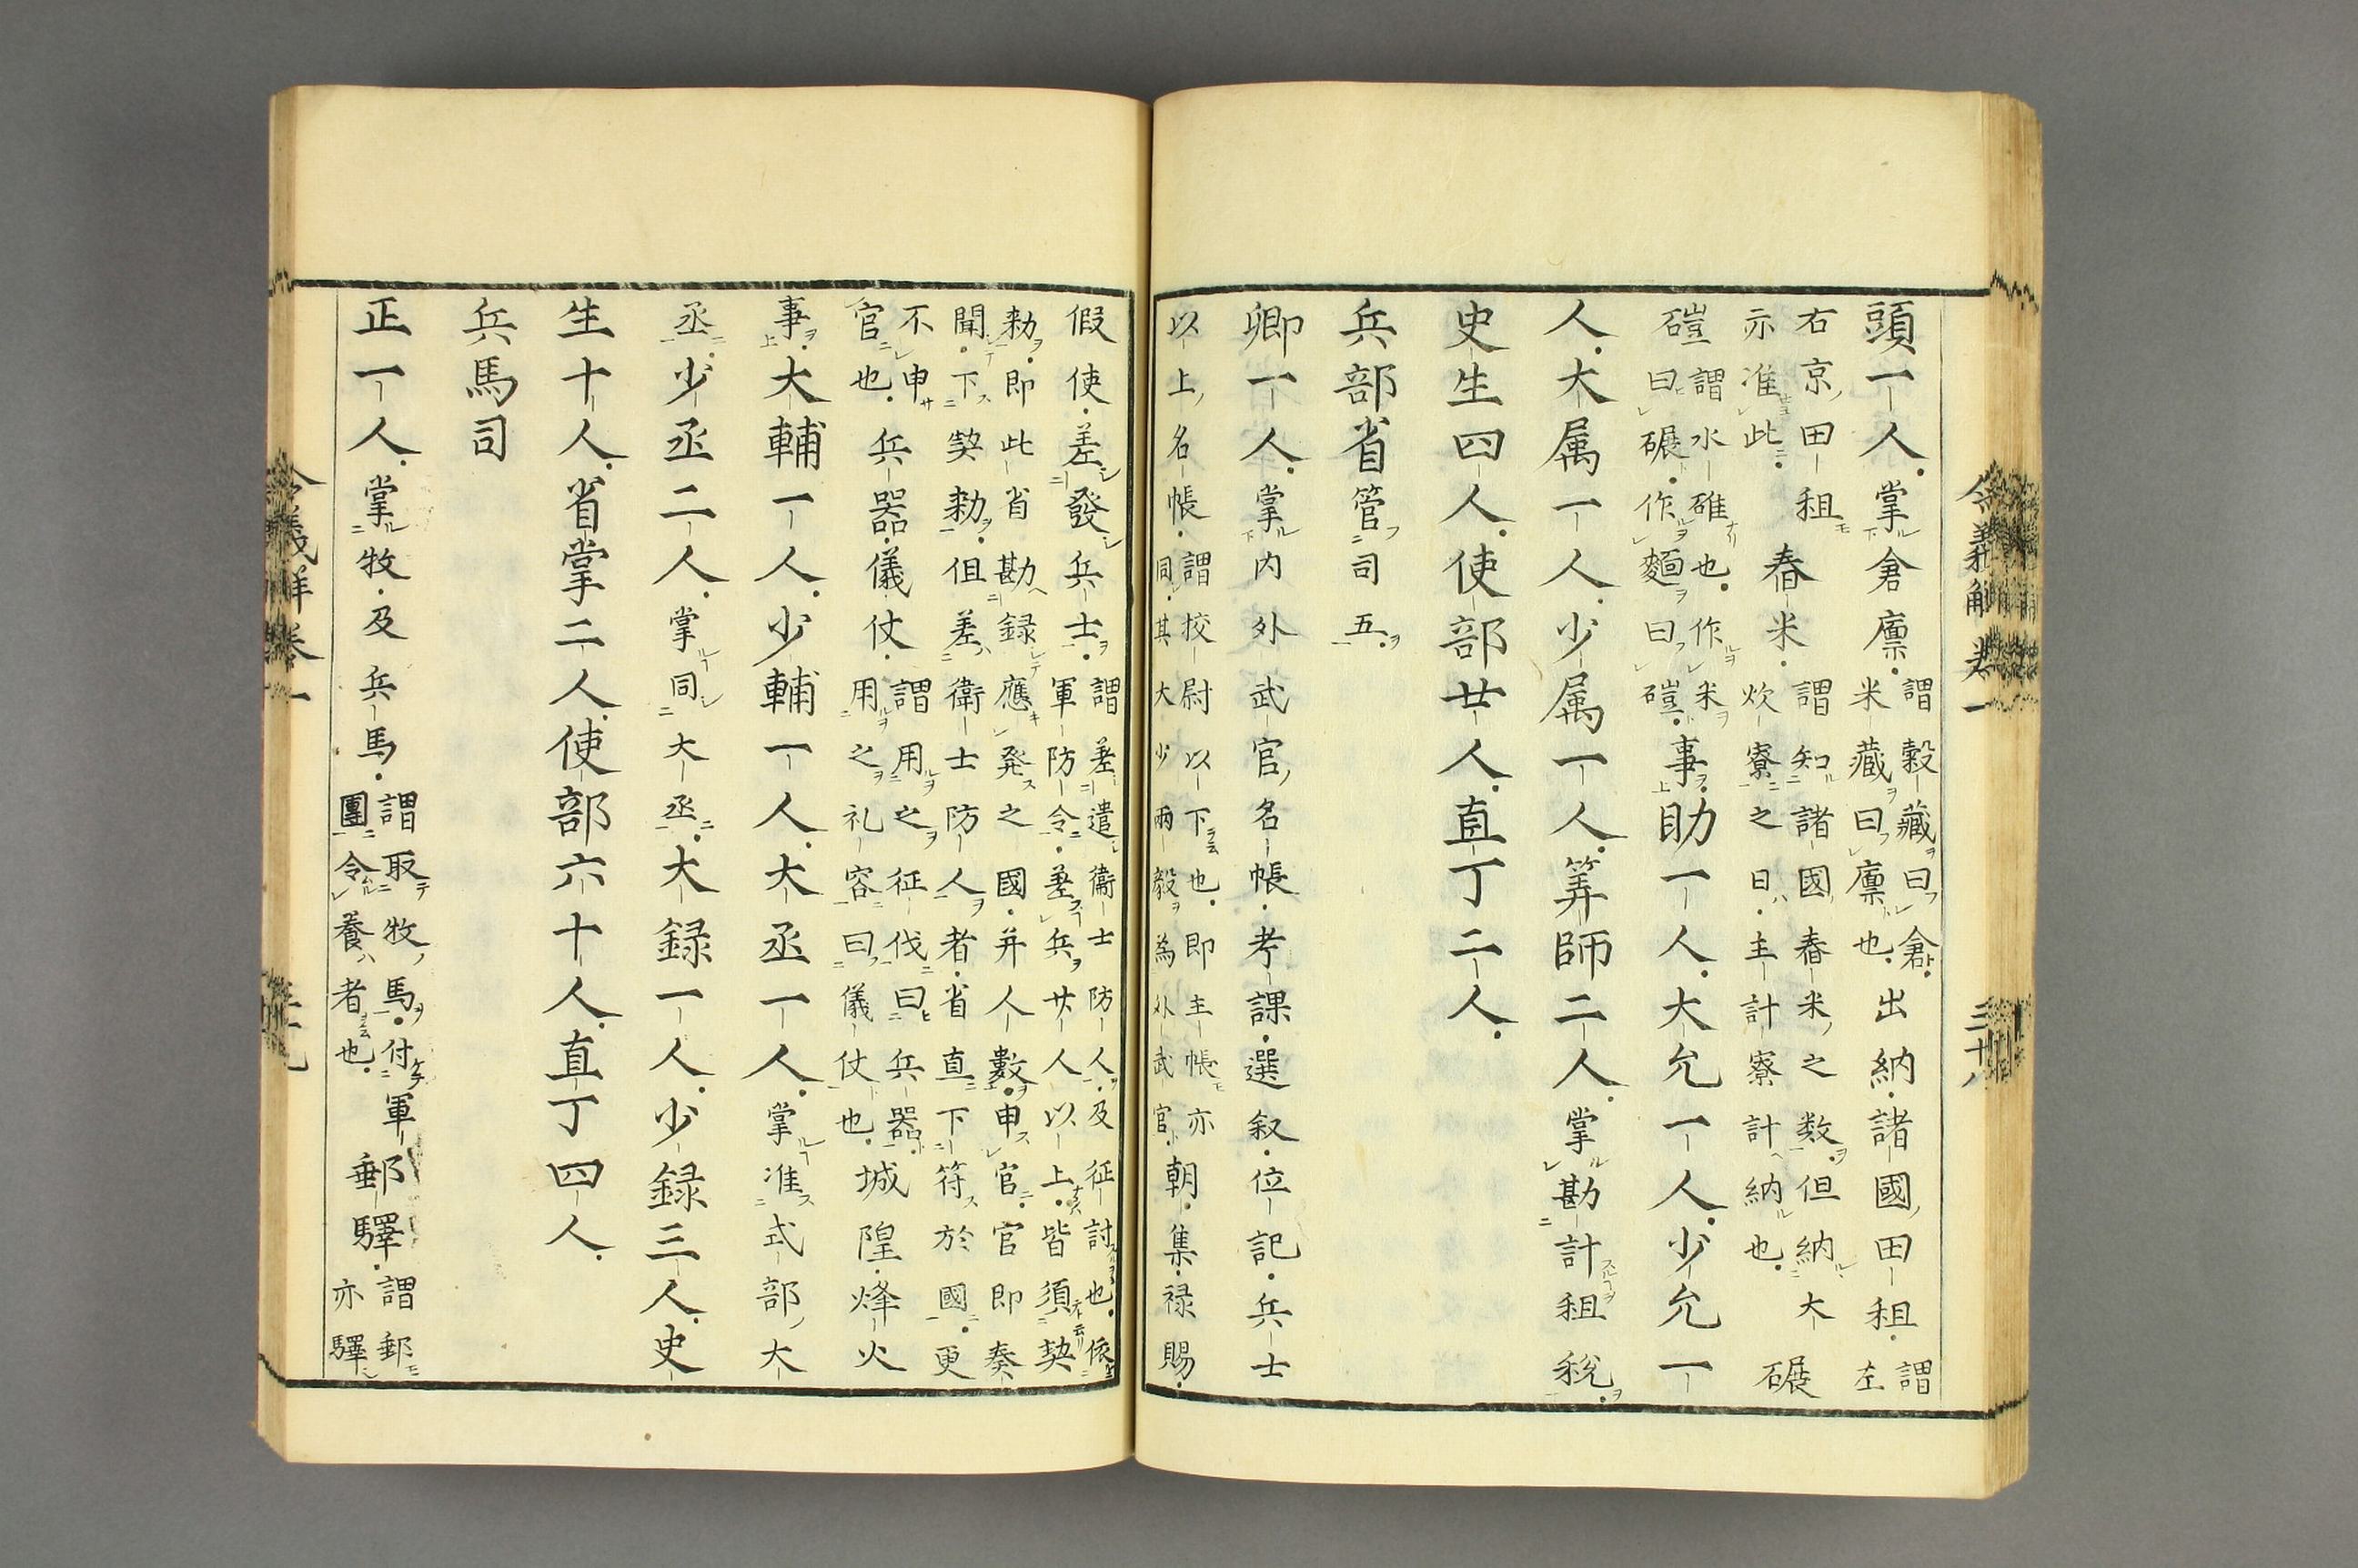 頭一人掌倉廩謂穀藏曰倉米藏曰廩也出納諸國田租謂左
右京田租亦准此舂米謂知諸國舂米之数但納大炊寮之日主計寮計納也碾
磑謂水碓也作米曰碾作麵曰磑事助一人大允一人少允一
人大属一人少属一人筭師二人掌勘計租税
史生四人使部廿人直丁二人
兵部省管司五
卿一人掌内外武官名帳考課選叙位記兵士
以上名帳謂校尉以下也即主帳亦同其大少兩毅為外武官朝集禄賜
假使差發兵士謂差遣衛士防人及征討也依軍防令差兵廿人以上皆須契
勅即此省勘録應発之國并人數申官官即奏聞下契勅但差衛士防人者省直下符於國更
不申官也兵器儀仗謂用之征伐曰兵器用之礼容曰儀仗也城隍烽火
事大輔一人少輔一人大丞一人掌准式部大
丞少丞二人掌同大丞大録一人少録三人史
生十人省掌二人使部六十人直丁四人
兵馬司
正一人掌牧及兵馬謂取牧馬付軍團令養者也郵驛謂郵亦驛
令義解卷一 三十八
令義解卷一